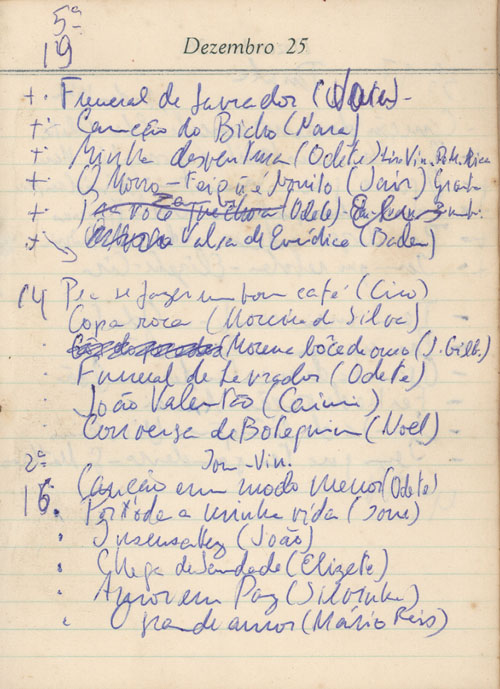 5ª
19
Dezembro 25
+ Funeral de Lavrador (Nara) -
+ Canção do Bicho (Nara)
+ Minha desventura (Odete) Vin.
+ O Morro - Feio não é bonito (Jair)
+ Pra você (Odete)
+ Valsa de Eurídice (Baden)
14 Pra se fazer um bom café (Ciro)
Copa roca (Moreira d Silva)
Morena bôca de ouro (J. Gilb.)
Funeral de Lavrador (Odete)
João Valentão (Caimi)
Conversa de Botequim (Noel)
2ª Tom-Vin.
16 Canção em modo menor (Odete)
Por tôda a minha vida (
Insensatez (João)
Chega de Saudade (Elizete)
Amor em Paz (Silvinha)
Grande amor (Mário Reis)